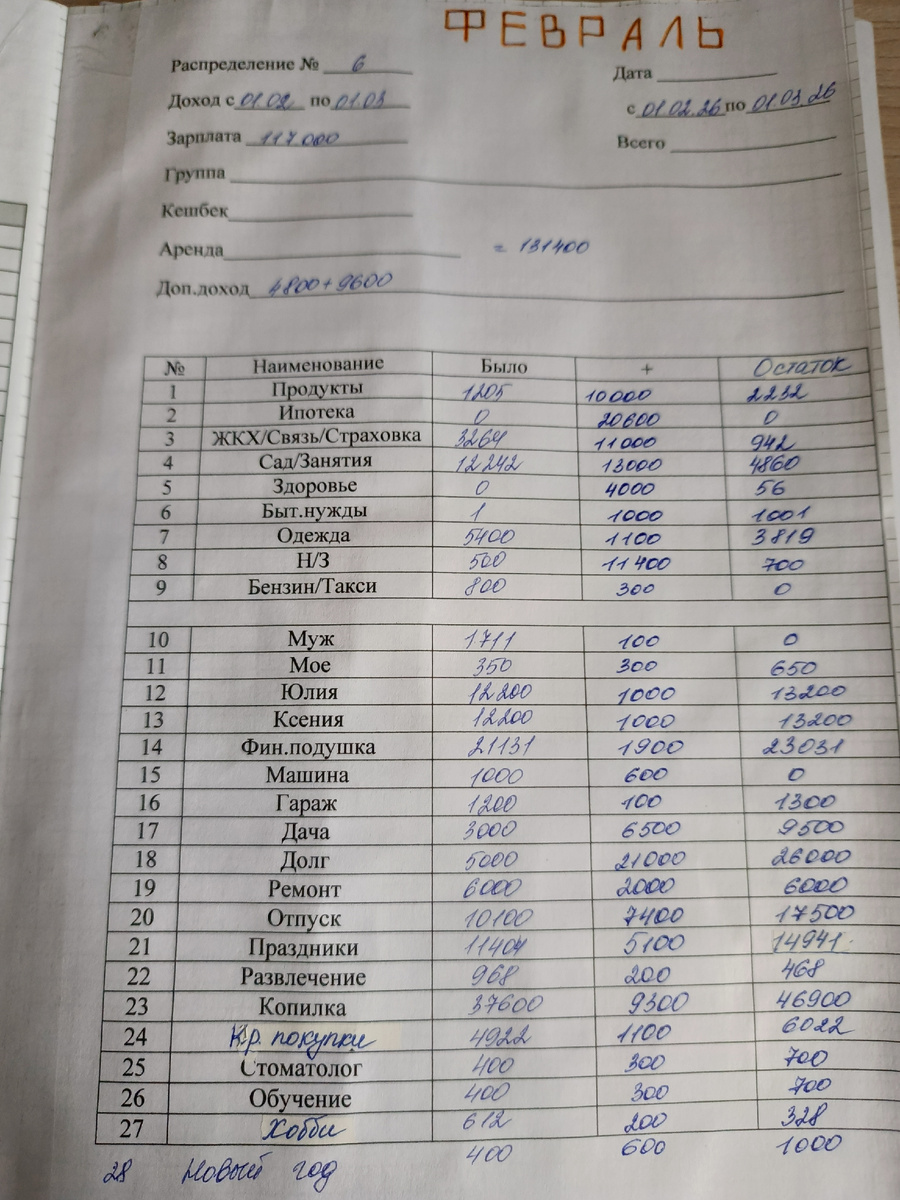 ФЕВРАЛЬ
Распределение № 6 Дата
Доход с 01.02 по 01.03 с 01.02.26 по 01.03.26
Зарплата 117000 Всего
Группа
Кешбек
Аренда = 131400
Доп.доход 4800+9600
№ Наименование Было + Остаток
1 Продукты 1205 10000 2232
2 Ипотека 0 20600 0
3 ЖКХ/Связь/Страховка 3264 11000 942
4 Сад/Занятия 12242 13000 4860
5 Здоровье 0 4000 56
6 Быт.нужды 1 1000 1001
7 Одежда 5400 1100 3819
8 Н/З 500 11400 700
9 Бензин/Такси 800 300 0
10 Муж 1711 100 0
11 Мое 350 300 650
12 Юлия 12200 1000 13200
13 Ксения 12200 1000 13200
14 Фин.подушка 21131 1900 23031
15 Машина 1000 600 0
16 Гараж 1200 100 1300
17 Дача 3000 6500 9500
18 Долг 5000 21000 26000
19 Ремонт 6000 2000 6000
20 Отпуск 10100 7400 17500
21 Праздники 11404 5100 14941
22 Развлечение 968 200 468
23 Копилка 37600 9300 46900
24 Кр. покупки 4922 1100 6022
25 Стоматолог 400 300 700
26 Обучение 400 300 700
27 Хобби 612 200 328
28 Новый год 400 600 1000